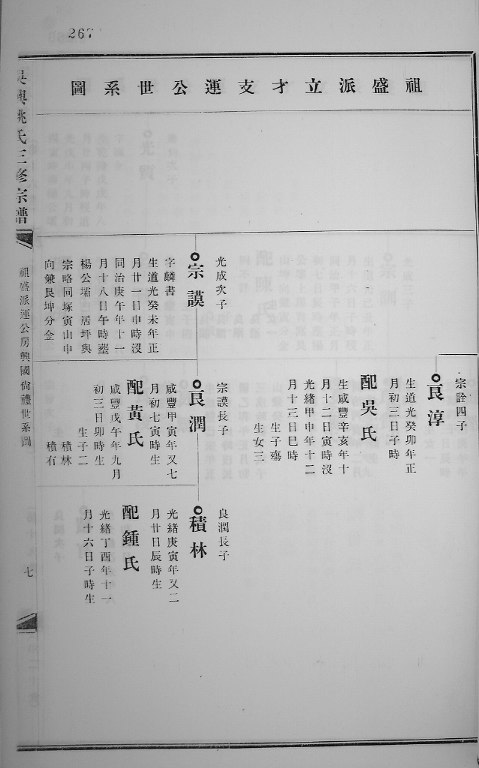 267
祖盛派立才支運公世系圖
宗詮四子
良淳
生道光癸卯年正
月初三日子時
配吳氏
生咸豐辛亥年十
月十二日寅時沒
光緒甲申年十二
月十三日巳時
生子
生女三
光成次子
宗謨
字麟書
生道光癸未年正
月廿一日申時沒
同治庚午年十一
月十八日午時塟
楊公壩居坪與
宗略同塚寅山申
向兼艮坤分金
宗謨長子
良潤
咸豐甲寅年又七
月初七寅時生
配黃氏
咸豐戊午年九月
初三日卯時生
生子二
積林
積有
良潤長子
積林
光緒庚寅年又二
月廿日辰時生
配鍾氏
光緒丁酉年十一
月十六日子時生
吳興姚氏三修宗譜
祖盛派運公房興國尙禮世系圖
七